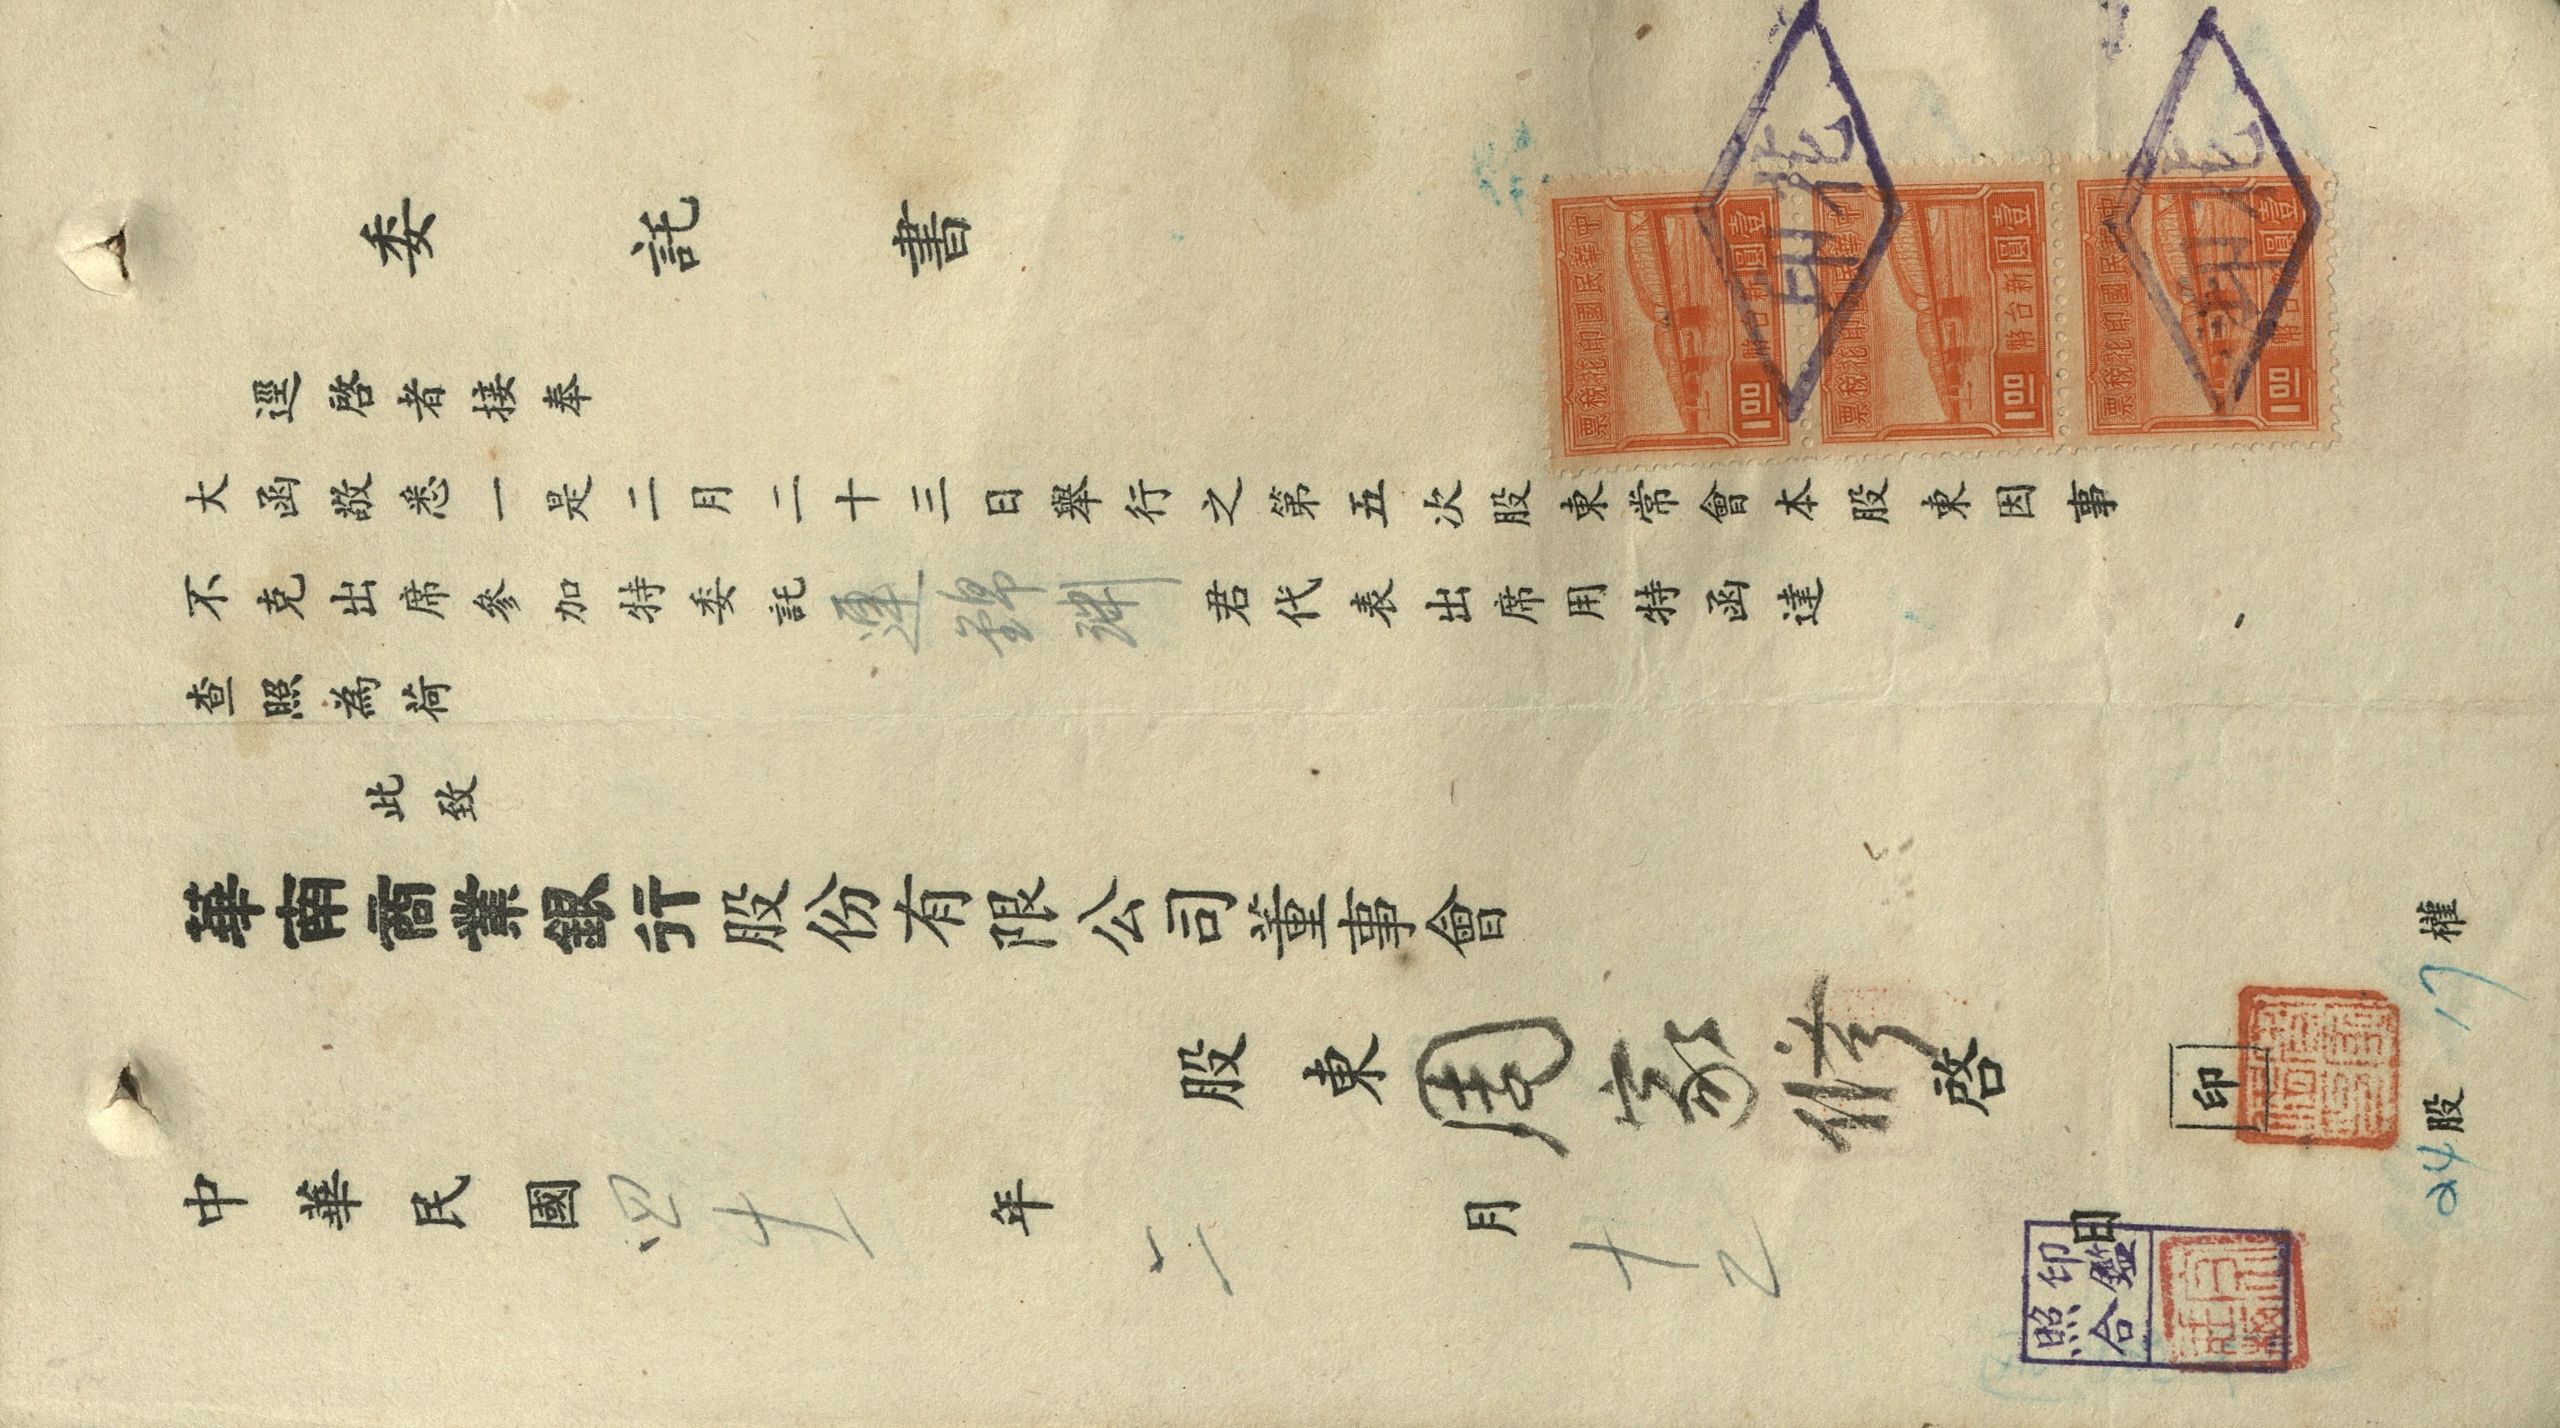 委託書
逕啓者接奉
大函敬悉一是二月二十三日舉行之第五次股東常會本股東因事
不克出席參加特委託連錦淵君代表出席用特函達
查照為荷
此致
華南商業銀行股份有限公司董事會
股東周家修啓
印
24股 17權
中華民國四十一年二月十二日
印鑑
照合
中華民國印花稅票
壹圓新台幣
1.00
中華民國印花稅票
壹圓新台幣
1.00
中華民國印花稅票
壹圓新台幣
1.00